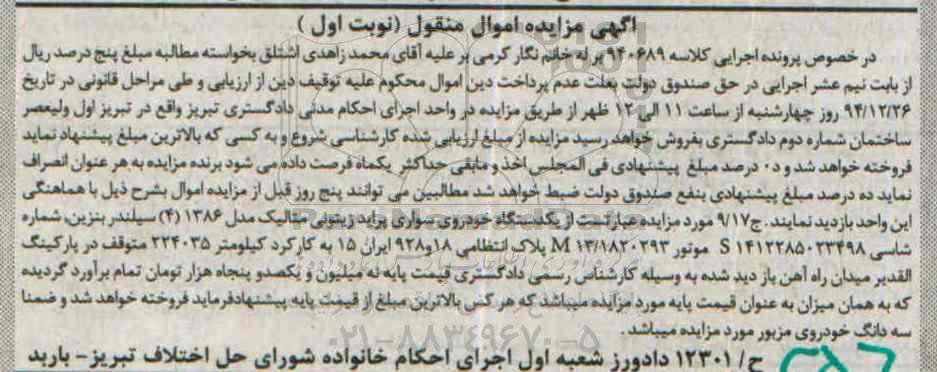 آگهی مزایده اموال منقول (نوبت اول)
در خصوص پرونده اجرایی کلاسه ۹۴۰۶۸۹ بر له خانم نگار کرمی بر علیه آقای محمد زاهدی اشتلق بخواسته مطالبه مبلغ پنج درصد ریال
از بابت نیم عشر اجرایی در حق صندوق دولت بعلت عدم پرداخت دین اموال محکوم علیه توقیف دین از ارزیابی و طی مراحل قانونی در تاریخ
۹۴/۱۲/۲۶ روز چهارشنبه از ساعت ۱۱ الی ۱۲ ظهر از طریق مزایده در واحد اجرای احکام مدنی دادگستری تبریز واقع در تبریز اول ولیعصر
ساختمان شماره دوم دادگستری بفروش خواهد رسید مزایده از مبلغ ارزیابی شده کارشناسی شروع و به کسی که بالاترین مبلغ پیشنهاد نماید
فروخته خواهد شد و ۱۰ درصد مبلغ پیشنهادی فی المجلس اخذ و مابقی حداکثر یکماه فرصت داده می شود برنده مزایده به هر عنوان انصراف
نماید ده درصد مبلغ پیشنهادی بنفع صندوق دولت ضبط خواهد شد مطالبین می توانند پنج روز قبل از مزایده اموال بشرح ذیل با هماهنگی
این واحد بازدید نمایند. ج۹/۱۷ مورد مزایده عبارتست از یکدستگاه خودروی سواری پراید زیتونی متالیک مدل ۱۳۸۶ (۴) سیلندر بنزین، شماره
شاسی S ۱۴۱۲۲۸۵۰۲۳۴۹۸ موتور M ۱۳/۱۸۲۰۲۹۳ پلاک انتظامی ۱۸و۹۲۸ ایران ۱۵ به کارکرد کیلومتر ۲۲۴۰۳۵ متوقف در پارکینگ
القدیر میدان راه آهن باز دید شده به وسیله کارشناس رسمی دادگستری قیمت پایه نه میلیون و یکصدو پنجاه هزار تومان تمام برآورد گردیده
که به همان میزان به عنوان قیمت پایه مورد مزایده میباشد که هر کس بالاترین مبلغ از قیمت پایه پیشنهادفرماید فروخته خواهد شد و ضمنا
سه دانگ خودروی مزبور مورد مزایده میباشد.
۰۲۱-۸۸۳۴۹۶۷۰-۵
ح/ ۱۲۳۰۱ دادورز شعبه اول اجرای احکام خانواده شورای حل اختلاف تبریز- باربد